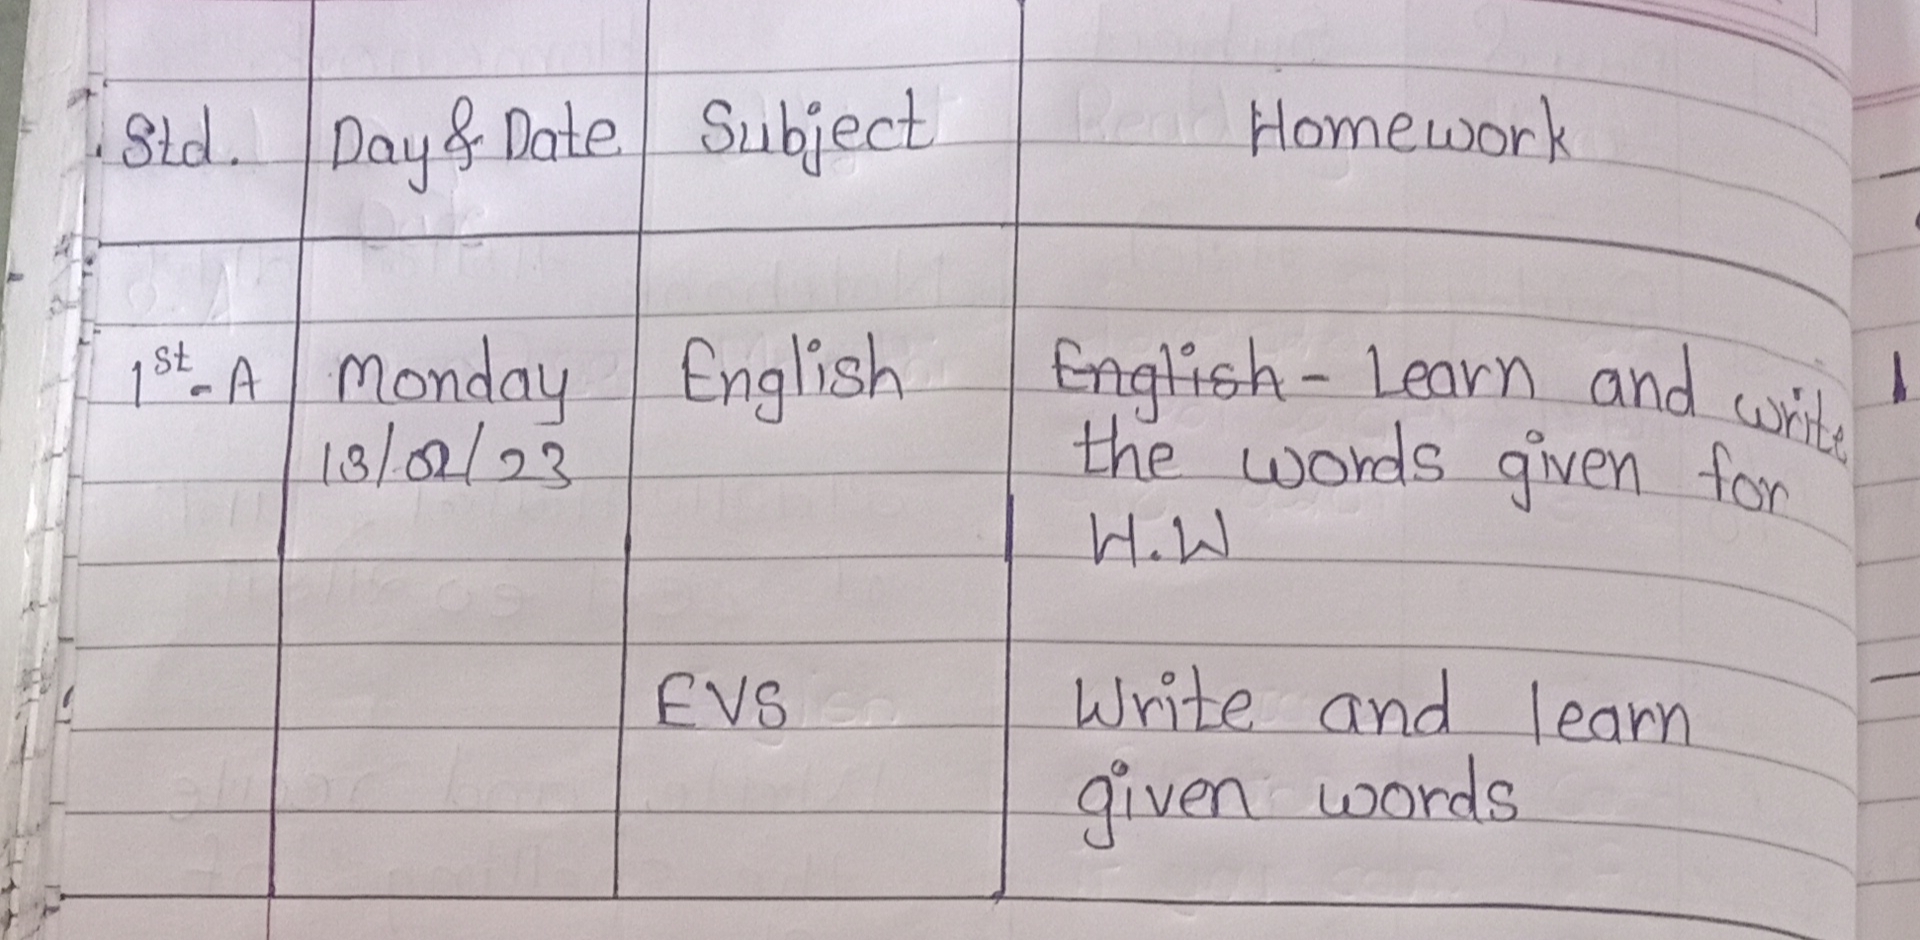 Std. Day & Date Subject Homework
1st - A Monday English English - Learn and write
13/02/23 the words given for
H.W
EVS Write and learn
given words